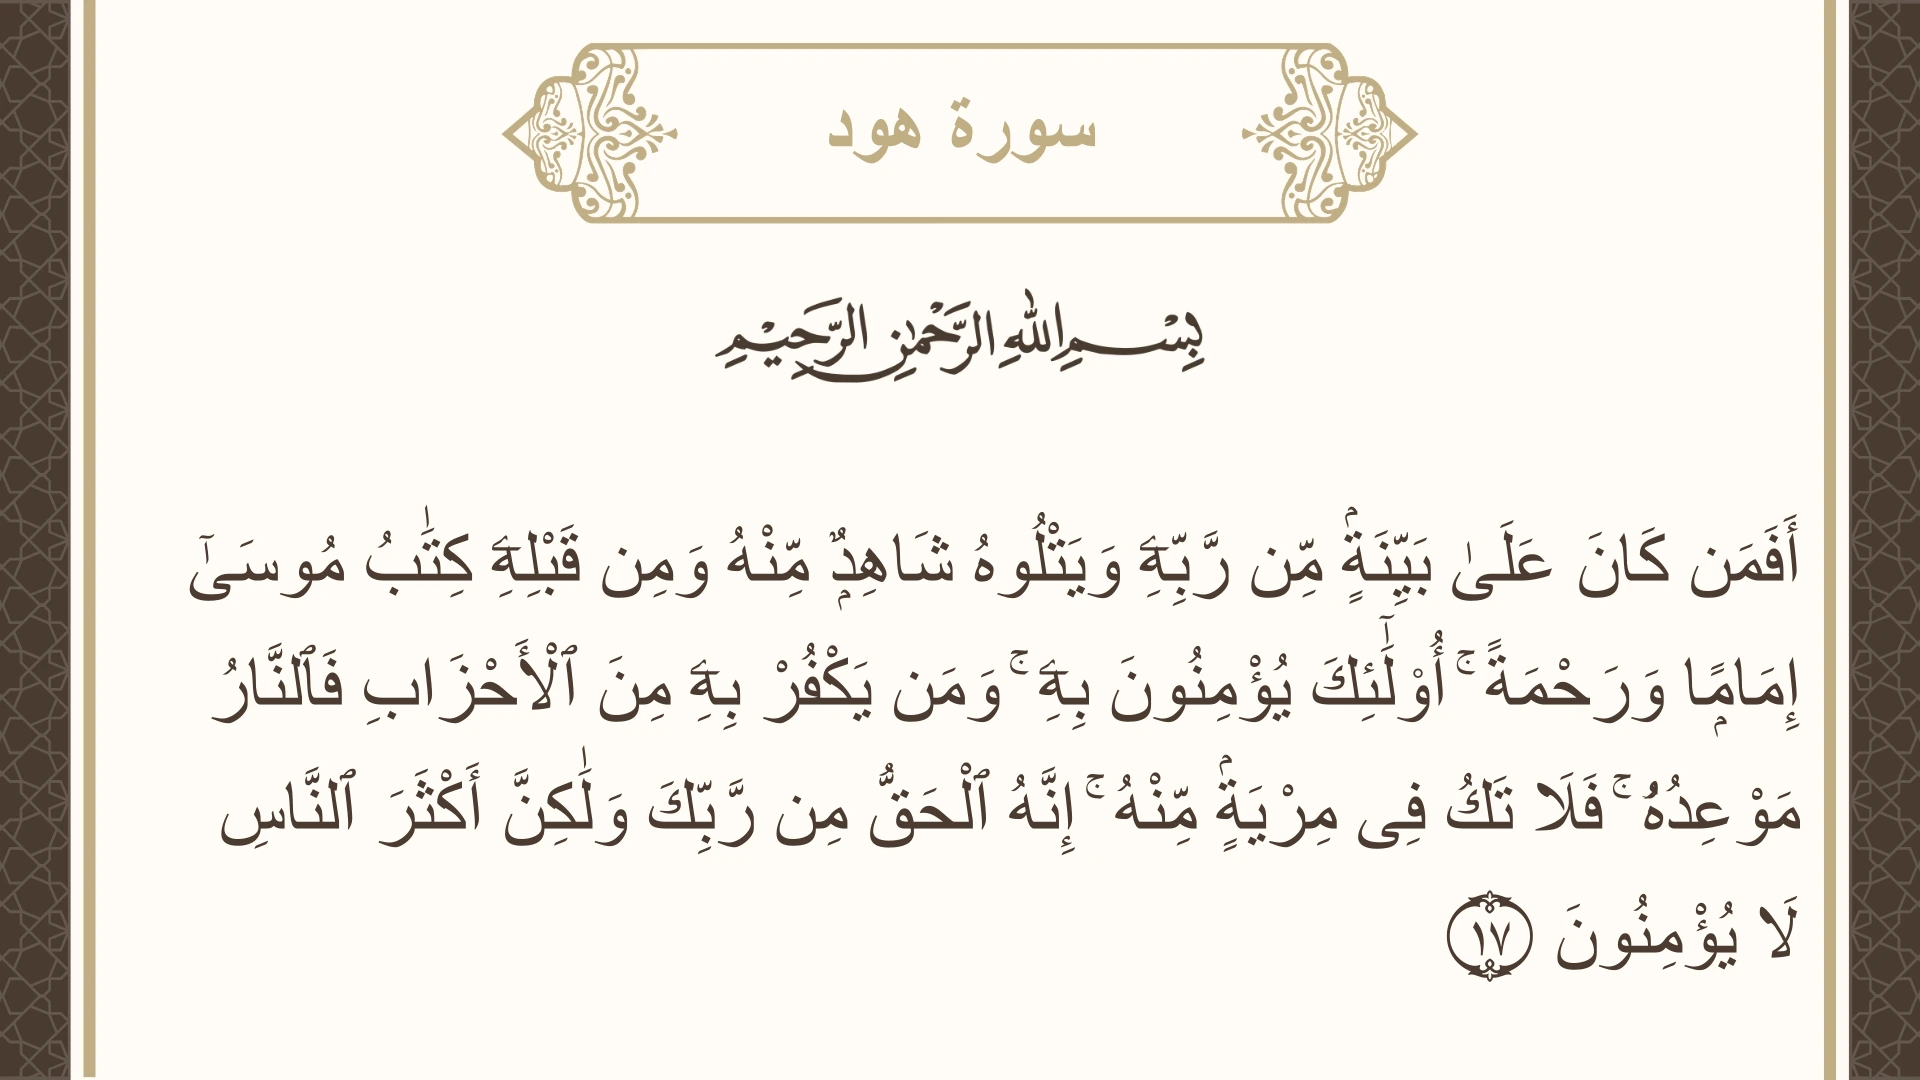 سورة هود
بِسْمِ اللهِ الرَّحْمٰنِ الرَّحِيْمِ
أَفَمَن كَانَ عَلَىٰ بَيِّنَةٍۢ مِّن رَّبِّهِۦ وَيَتْلُوهُ شَاهِدٌۭ مِّنْهُ وَمِن قَبْلِهِۦ كِتَٰبُ مُوسَىٰٓ
إِمَامًۭا وَرَحْمَةً ۚ أُو۟لَٰٓئِكَ يُؤْمِنُونَ بِهِۦ ۚ وَمَن يَكْفُرْ بِهِۦ مِنَ ٱلْأَحْزَابِ فَٱلنَّارُ
مَوْعِدُهُۥ ۚ فَلَا تَكُ فِى مِرْيَةٍۢ مِّنْهُ ۚ إِنَّهُ ٱلْحَقُّ مِن رَّبِّكَ وَلَٰكِنَّ أَكْثَرَ ٱلنَّاسِ
لَا يُؤْمِنُونَ ١٧